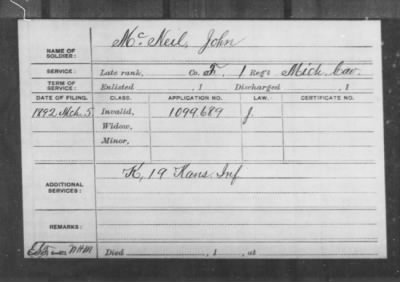 NAME OF SOLDIER: McNeil, John
SERVICE: Late rank, Co. F, 1 Reg't Mich. Cav.
TERM OF SERVICE: Enlisted , 1 Discharged , 1
DATE OF FILING. CLASS. APPLICATION NO. LAW. CERTIFICATE NO.
1892 Mch. 5 Invalid, 1099.689 J.
Widow,
Minor,
ADDITIONAL SERVICES: K, 19 Kans. Inf
REMARKS:
Died , 1 , at